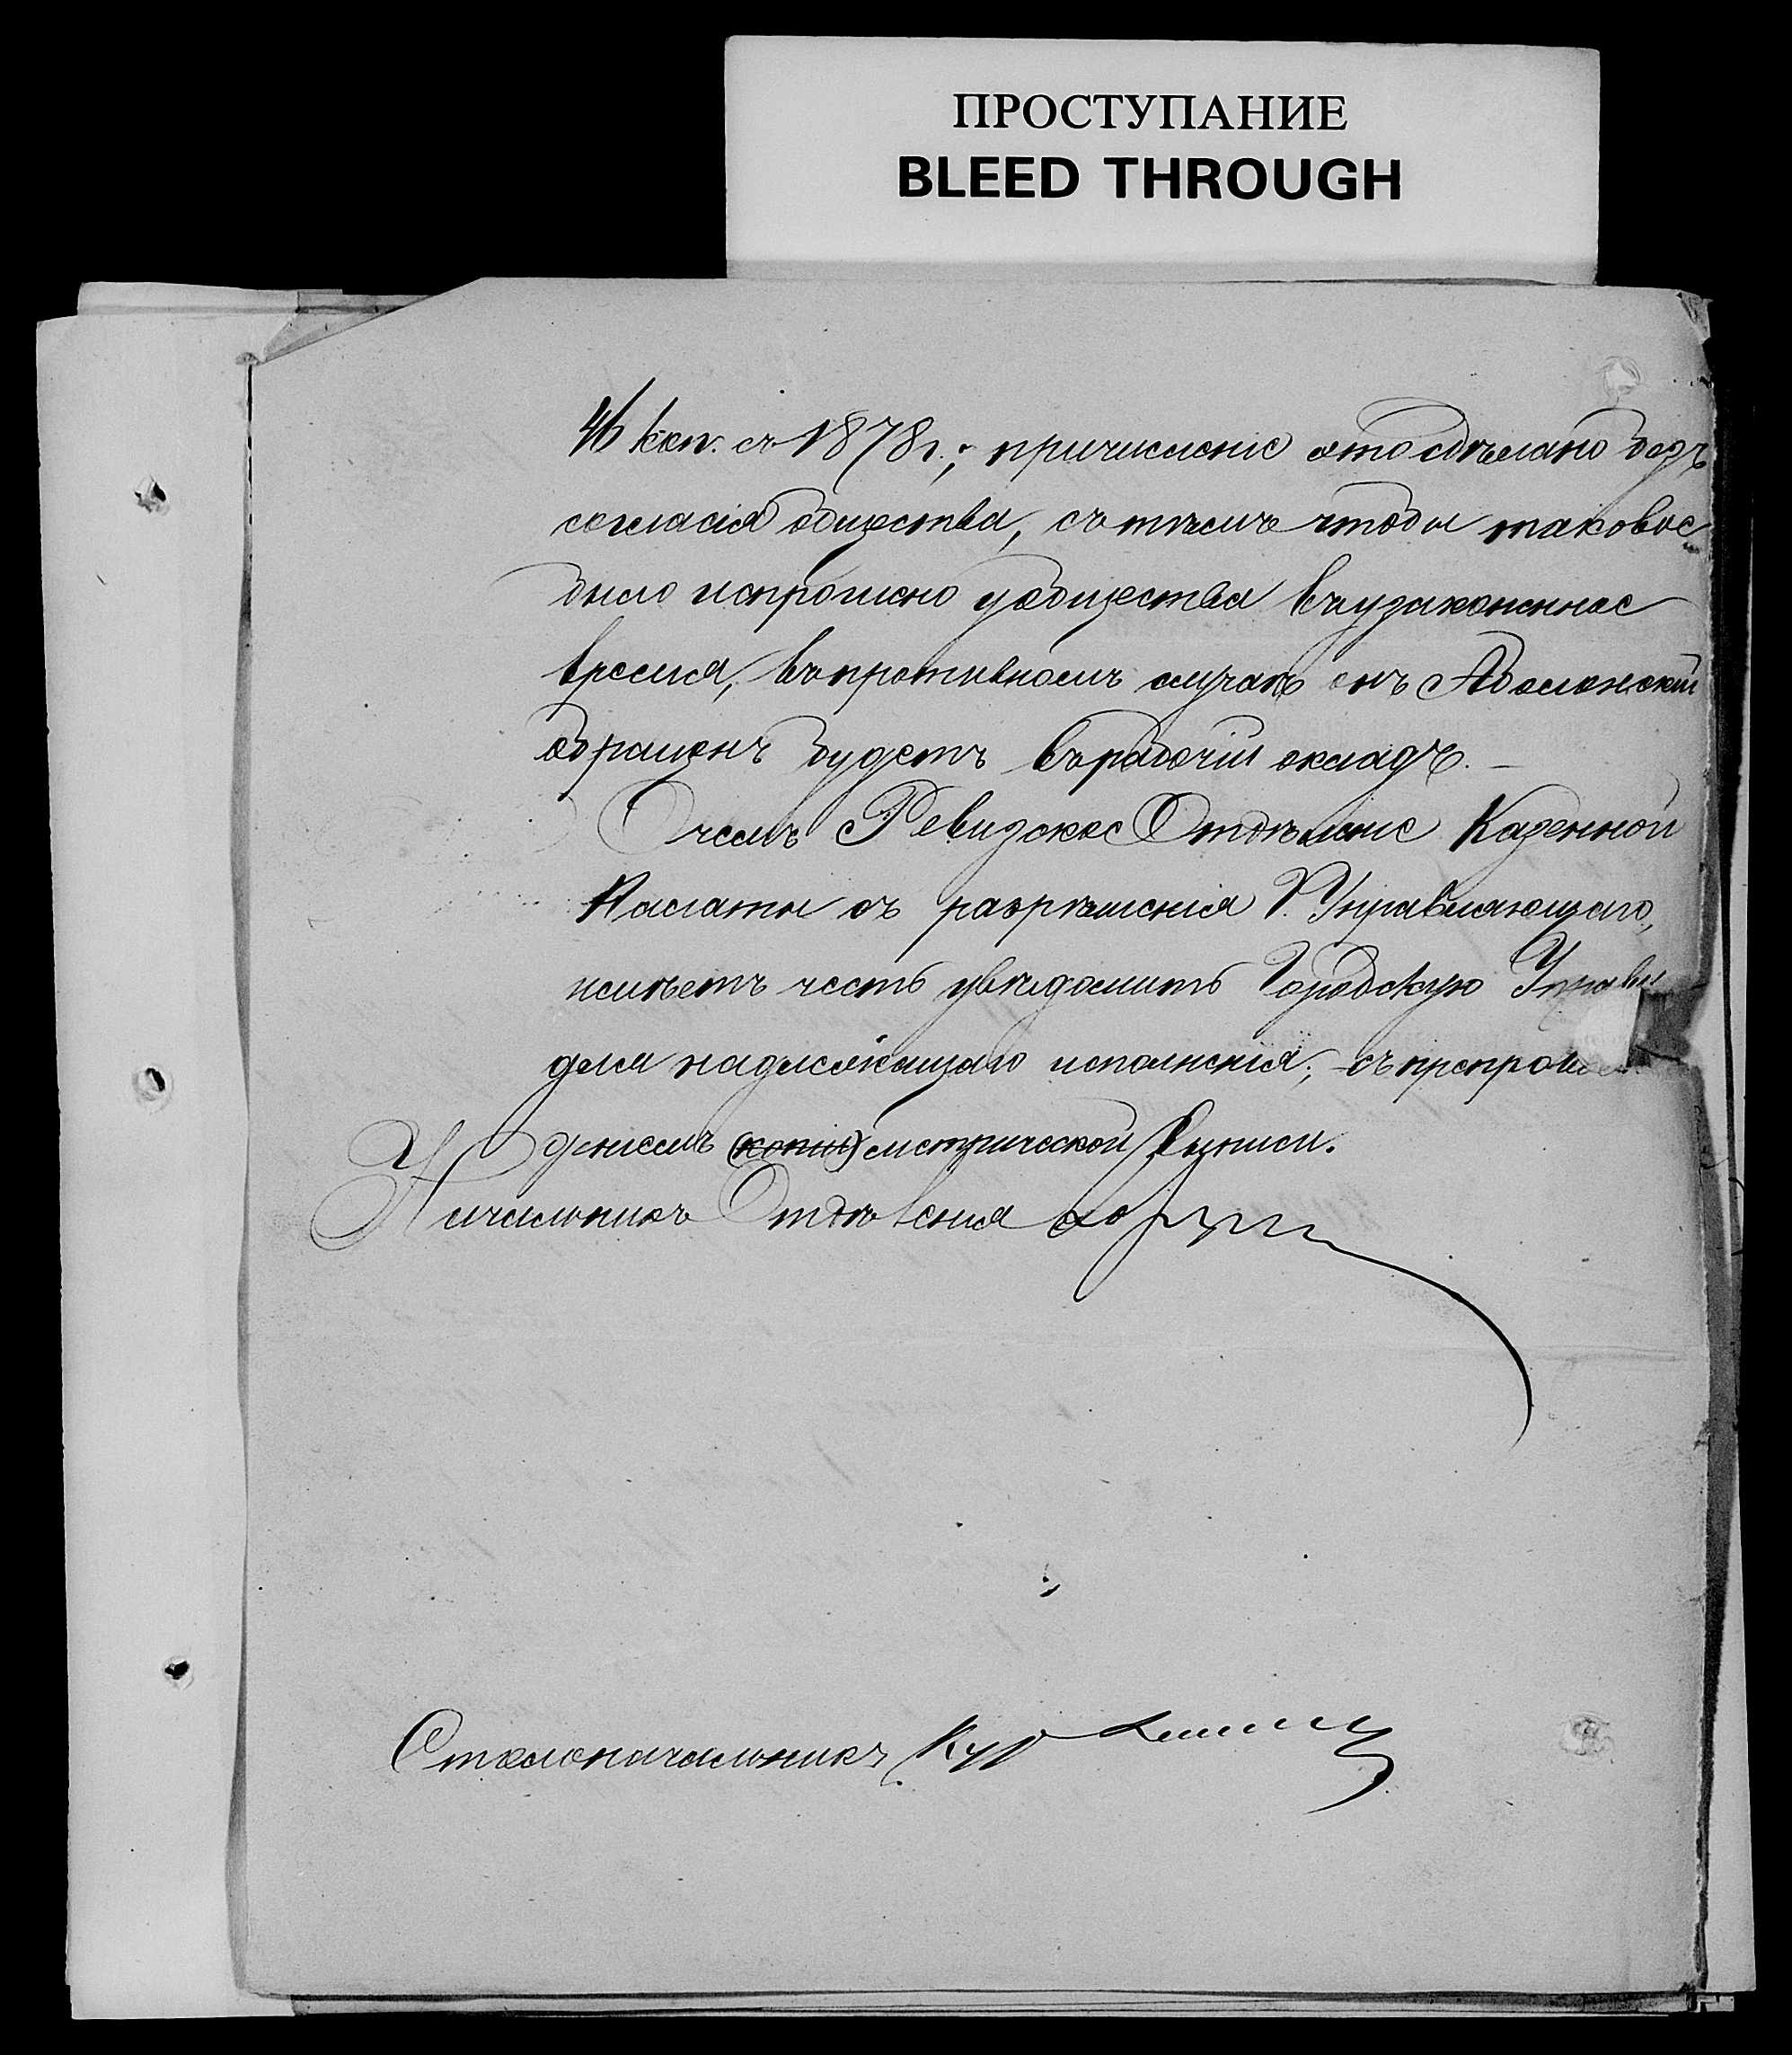 ПРОСТУПАНИЕ
BLEED THROUGH
46 коп. съ 1878 г.; причисленіе это сдѣлано безъ
согласія общества, съ тѣмъ чтобы таковое
было испрошено у общества въ узаконенное
время, въ противномъ случаѣ онъ Аболенскій
обращенъ будетъ въ рабочій окладъ. —
О чемъ Ревизское Отдѣленіе Казенной
Палаты съ разрѣшенія Г. Управляющаго,
имѣетъ честь увѣдомить Городскую Управу
для надлежащаго исполненія; съ препровож
деніемъ (копіи) метрической выписи.
Начальникъ Отдѣленія
Столоначальникъ